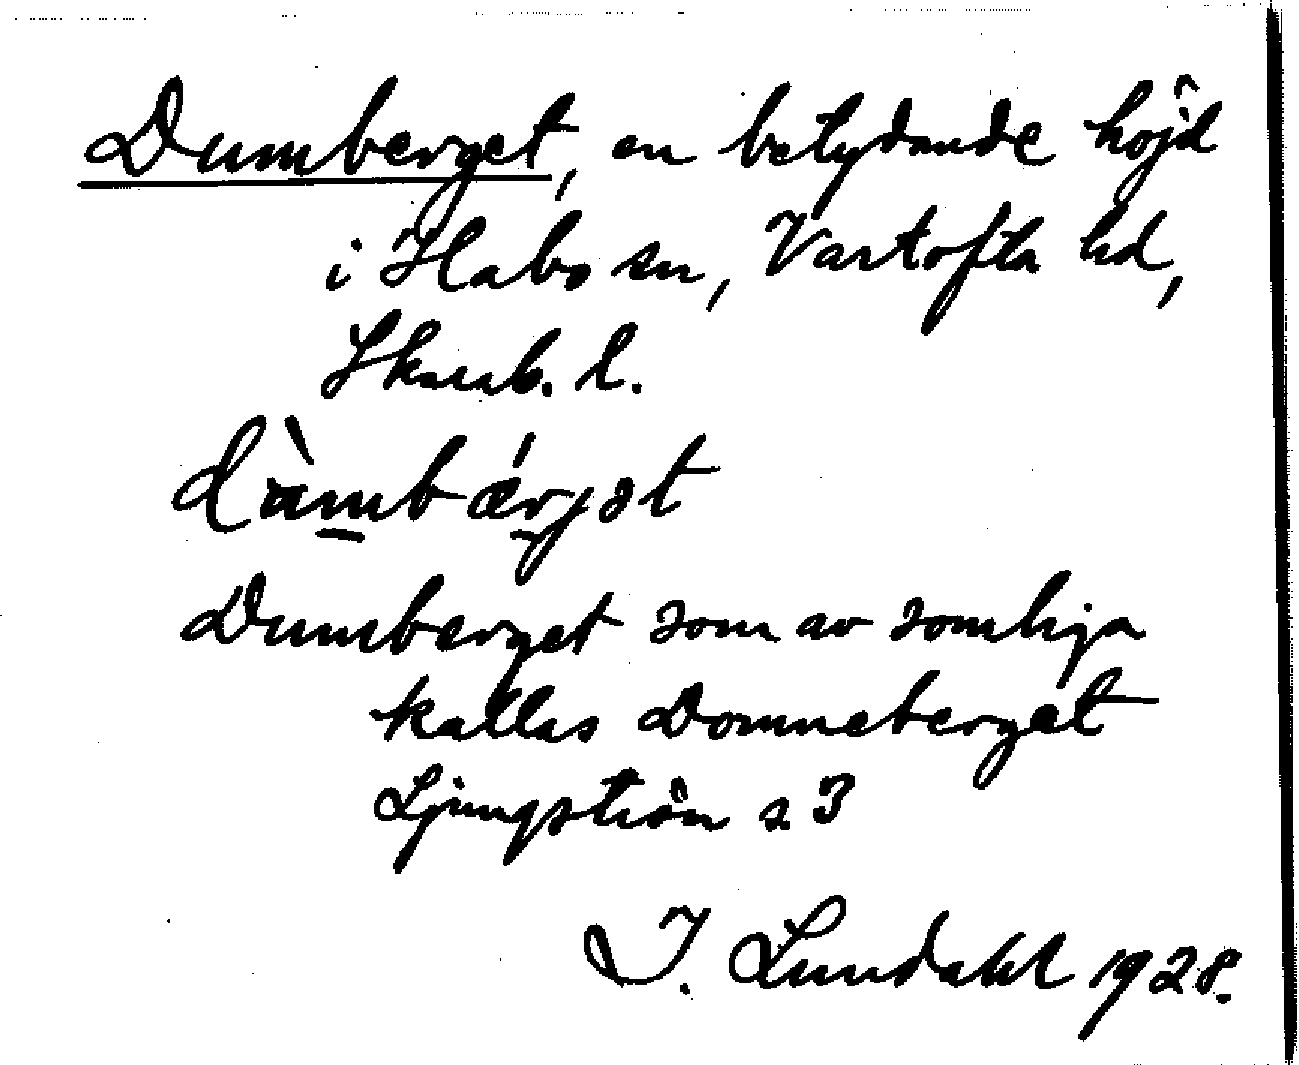 Dumberget, en betydande höjd
i Habo sn, Vartofta hd,
Skarab. l.
dùmbǽrjət
Dumberget som av somliga
kallas Domneberget
Ljungström s. 3
I. Lundahl 1928.